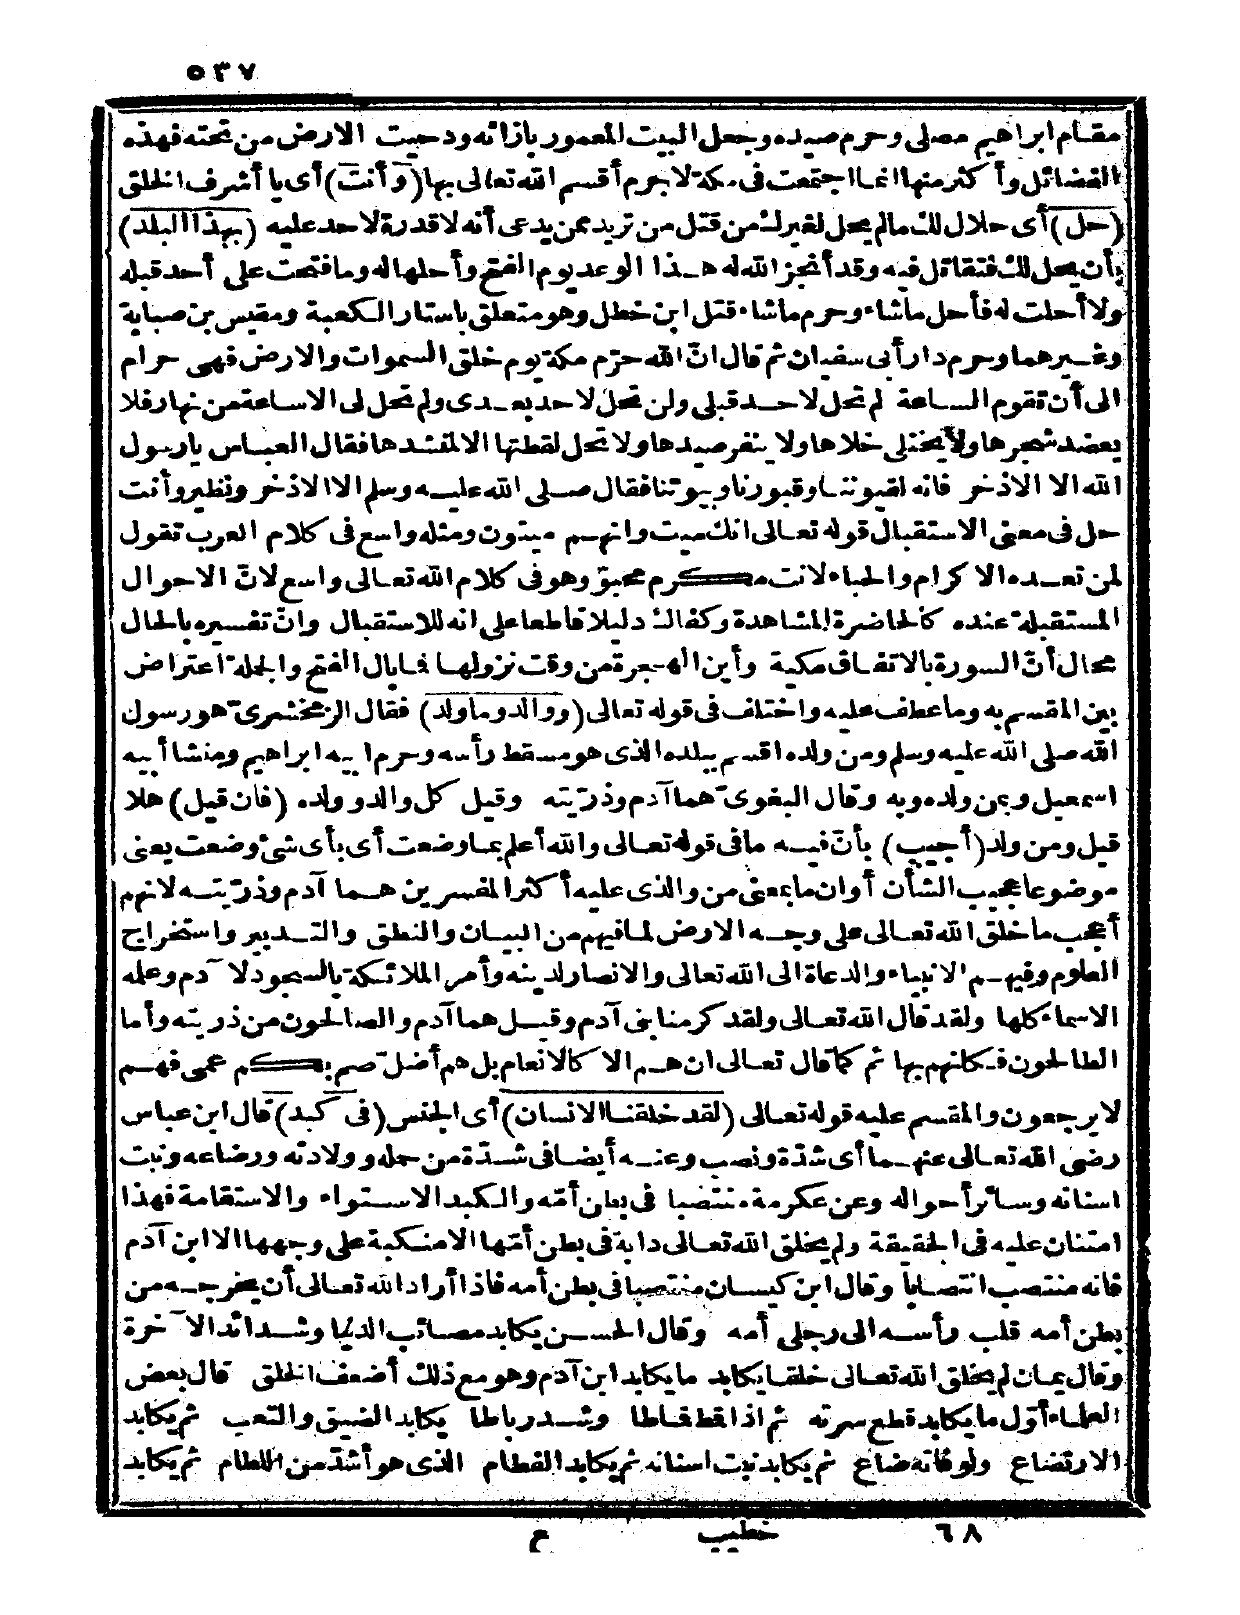 ٥٣٧
مقام ابراهيم مصلى وحرم صيده وجعل البيت المعمور بازائه ودحيت الارض من تحته فهذه
الفضائل وأكثر منها انما اجتمعت فى مكة لا جرم أقسم الله تعالى بها (وأنت) أى يا أشرف الخلق
(حل) أى حلال لك مالم يحل لغيرك من قتل من تريد ممن يدعى أنه لا قدرة لاحد عليه (بهذا البلد)
بأن يحل لك فتقاتل فيه وقد أنجز الله له هذا الوعد يوم الفتح وأحلها له وما فتحت على أحد قبله
ولا أحلت له فأحل ماشاء وحرم ماشاء قتل ابن خطل وهو متعلق باستار الكعبة ومقيس بن صبابة
وغيرهما وحرم دار أبى سفيان ثم قال انّ الله حرّم مكة يوم خلق السموات والارض فهى حرام
الى أن تقوم الساعة لم تحل لاحد قبلى ولن تحل لاحد بعدى ولم تحل لى الا ساعة من نهار فلا
يعضد شجرها ولا يختلى خلاها ولا ينفر صيدها ولا تحل لقطتها الا لمنشد ها فقال العباس يارسول
الله الا الاذخر فانه لقيوننا وقبورنا وبيوتنا فقال صلى الله عليه وسلم الا الاذخر ونظير وأنت
حل فى معنى الاستقبال قوله تعالى انك ميت وانهم ميتون ومثله واسع فى كلام العرب تقول
لمن تعده الاكرام والحباء لانت مكرم محبوّ وهو فى كلام الله تعالى واسع لانّ الاحوال
المستقبلة عنده كالحاضرة المشاهدة وكفاك دليلا قاطعا على انه للاستقبال وانّ تفسيره بالحال
محال أنّ السورة بالاتفاق مكية وأين الهجرة من وقت نزولها فما بال الفتح والجملة اعتراض
بين المقسم به وما عطف عليه واختلف فى قوله تعالى (ووالد وما ولد) فقال الزمخشرى هو رسول
الله صلى الله عليه وسلم ومن ولده اقسم ببلده الذى هو مسقط رأسه وحرم ابيه ابراهيم ومنشا أبيه
اسمعيل وبمن ولده وبه وقال البغوى هما آدم وذرّيته وقيل كل والد وولده (فان قيل) هلا
قيل ومن ولد (أجيب) بأنّ فيه مافى قوله تعالى والله أعلم بما وضعت أى بأى شئ وضعت يعنى
موضوعا عجيب الشأن أوان ما بمعنى من والذى عليه أكثر المفسرين هما آدم وذرّيته لانهم
أعجب ما خلق الله تعالى على وجه الارض لما فيهم من البيان والنطق والتدبير واستخراج
العلوم وفيهم الانبياء والدعاة الى الله تعالى والانصار لدينه وأمر الملائكة بالسجود لآدم وعلمه
الاسماء كلها ولقد قال الله تعالى ولقد كرمنا بنى آدم وقيل هما آدم والصالحون من ذريته وأما
الطالحون فكانهم بها ثم كما قال تعالى ان هم الا كالانعام بل هم أضل صم بكم عمى فهم
لا يرجعون والمقسم عليه قوله تعالى (لقد خلقنا الانسان) أى الجنس (فى كبد) قال ابن عباس
رضى الله تعالى عنهما أى شدّة ونصب وعنه أيضا فى شدّة من حمله وولادته ورضاعه ونبت
اسنانه وسائر أحواله وعن عكرمة منتصبا فى بطن أمّه والكبد الاستواء والاستقامة فهذا
امتنان عليه فى الحقيقة ولم يخلق الله تعالى دابة فى بطن أمّها الا منكبة على وجهها الا ابن آدم
فانه منتصب انتصابا وقال ابن كيسان منتصبا فى بطن أمه فاذا أراد الله تعالى أن يخرجه من
بطن أمه قلب رأسه الى رجلى أمه وقال الحسن يكابد مصائب الدنيا وشدائد الآخرة
وقال يمان لم يخلق الله تعالى خلقا يكابد ما يكابد ابن آدم وهو مع ذلك أضعف الخلق قال بعض
العلماء أوّل ما يكابد قطع سرته ثم اذا قط قماطا وشد رباطا يكابد الضيق والتعب ثم يكابد
الارتضاع ولو فاته ضاع ثم يكابد نبت اسنانه ثم يكابد الفطام الذى هو أشدّ من اللطام ثم يكابد
٦٨ خطيب ع